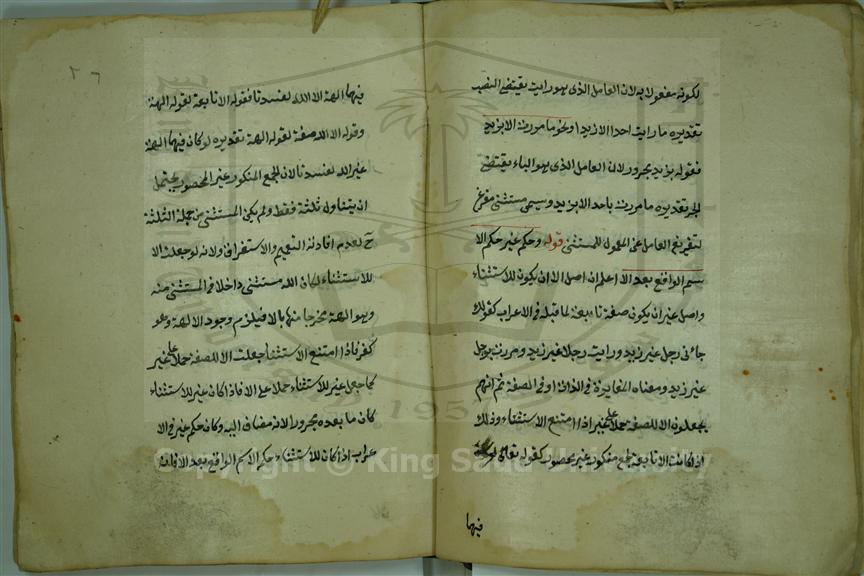 لكونه مفعولا به لان العامل الذى هو رايت يقتضى النصب
تقديره ما رايت احدا الا زيدا او نحو ما مررت الا بزيد
فقوله بزيد مجرور لان العامل الذى هو الباء يقتضى
الجر تقديره ما مررت باحد الا بزيد ويسمى مستثنى مفرغ
لتفريغ العامل عن المعمول للمستثنى قوله وحكم غير حكم الا
سم الواقع بعد الا اعلم ان اصل الا ان يكون للاستثناء
واصل غير ان يكون صفة تابعة لما قبله فى الاعراب كقولك
جائنى رجل غير زيد ورايت رجلا غير زيد ومررت برجل
غير زيد ومعناه المغايرة فى الذات او فى الصفة ثم انهم
يجعلون الا للصفة حملا على غير اذا امتنع الاستثناء وذلك
اذا كانت الا تابعة لجمع منكور غير محصور كقوله تعالى لو كان
فيها
٢٦
فيها الهة الا الله لفسدتا فقوله الا تابعة لقوله الهة
وقوله الا الله صفة لقوله الهة تقديره لو كان فيها الهة
غير الله لفسدتا لان الجمع المنكور غير المحصور يحتمل
ان يتناول ثلثة فقط ولم يكن المستثنى من جملة الثلثة
ح لعدم افادته التعميم والاستغراق ولانه لو جعلت الا
للاستثناء لكان الله مستثنى داخلا فى المستثنى منه
وهو الهة مخرجا منها بالا فيلزم وجود الالهة وهو
كفر فاذا امتنع الاستثناء جعلت الا للصفة حملا على غير
كما جعل غير للاستثناء حملا على الا فاذا كان غير للاستثناء
كان ما بعده مجرورا لانه مضاف اليه وكان حكم غير فى الا
عراب اذا كان للاستثناء حكم الاسم الواقع بعد الا
Copyright © King Saud University
195